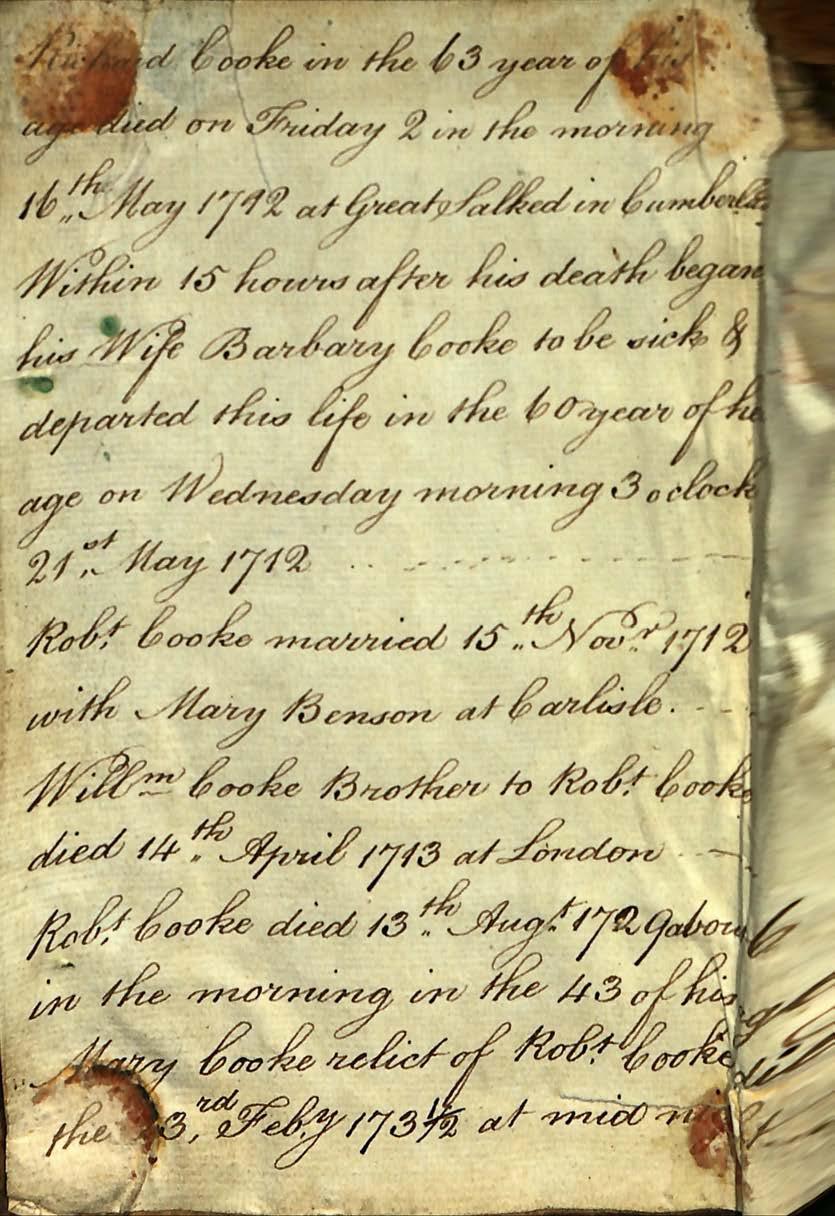 Richard Cooke in the 63 year of his
age died on Friday 2 in the morning
16th May 1712 at Great Salked in Cumberld
Within 15 hours after his death began
his Wife Barbary Cooke to be sick &
departed this life in the 60 year of he
age on Wednesday morning 3 oclock
21st May 1712
Robt Cooke married 15th Novr 1712
with Mary Benson at Carlisle.
Willm Cooke Brother to Robt Cooke
died 14th April 1713 at London
Robt Cooke died 13th Augt 1729 abou
in the morning in the 43 of his
Mary Cooke relict of Robt Cooke
the 3rd Feby 173½ at mid